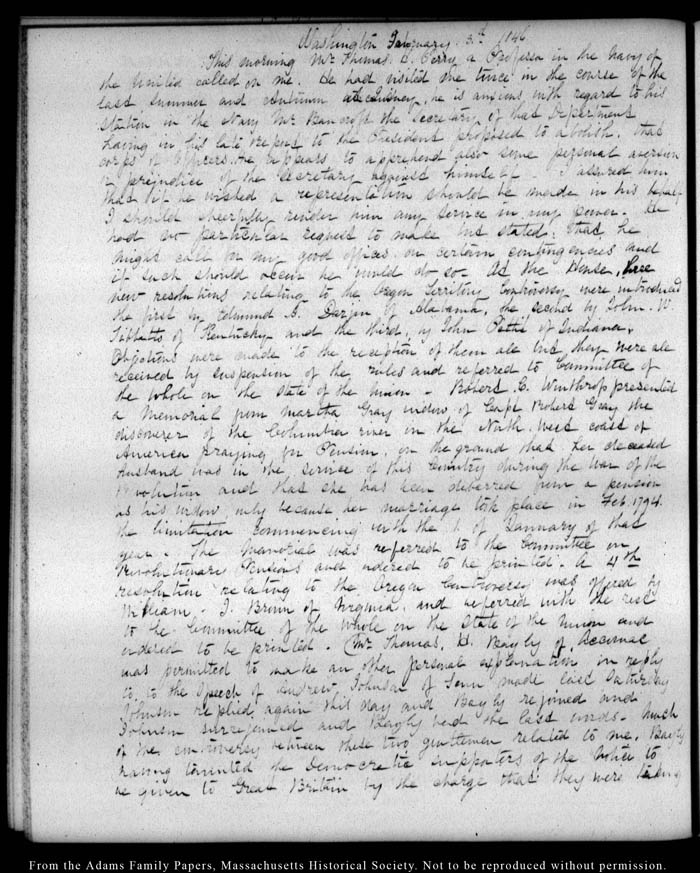 Washington January 3d 1846
This morning Mr Thomas. H. Perry a Professor in the Navy of
the United called on me. He had visited me twice in the course of the
last summer and Autumn at Quincy, he is anxious with regard to his
station in the Navy Mr Bancroft the Secretary of that Department
having in his late report to the President proposed to abolish, that
corps of Officers. he appears to apprehend also some personal aversion
or prejudice of the Secretary against himself - I assured him
that if he wished a representation should be made in his behalf
I should cheerfully render him any service in my power. He
had no particular request to make but stated, that he
might call for my good offices, on certain contingencies and
if such should occur he would do so - At the House, three
new resolutions relating to the Oregon Territory Controversy were introduced
the first by Edmund S. Dargin of Alabama, the second by John. W.
Tibbatts of Kentucky and the third, by John Pettit of Indiana.
Objections were made to the reception of them all but they were all
received by suspension of the rules and referred to Committee of
the whole on the state of the Union - Robert. C. Winthrop presented
a Memorial from Martha Gray widow of Capt Robert Gray the
discoverer of the Columbia river on the North West coast of
America praying for Pension, on the ground that her deceased
husband was in the service of this Country during the War of the
Revolution and that she has been debarred from a pension
as his widow, only because her marriage took place in Feb. 1794.
the limitation commencing with the 1. of January of that
year. The Memorial was referred to the Committee on
Revolutionary Pensions and ordered to be printed. A 4th
resolution relating to the Oregon Controversy was offered by
William - G. Brown of Virginia, and referred with the rest
to the Committee of the Whole on the State of the Union and
ordered to be printed. (Mr Thomas, H. Bayly of Accomac
was permitted to make an other personal explanation in reply
to, to the Speech of Andrew Johnson of Tenn made last Saturday
Johnson replied again this day and Bayly rejoined and
Johnson surrejoined and Bayly had the last words. Much
of the controversy between these two gentlemen related to me, Bayly
having taunted the Democratic supporters of the Notice to
be given to Great Britain by the charge that they were taking
From the Adams Family Papers, Massachusetts Historical Society. Not to be reproduced without permission.